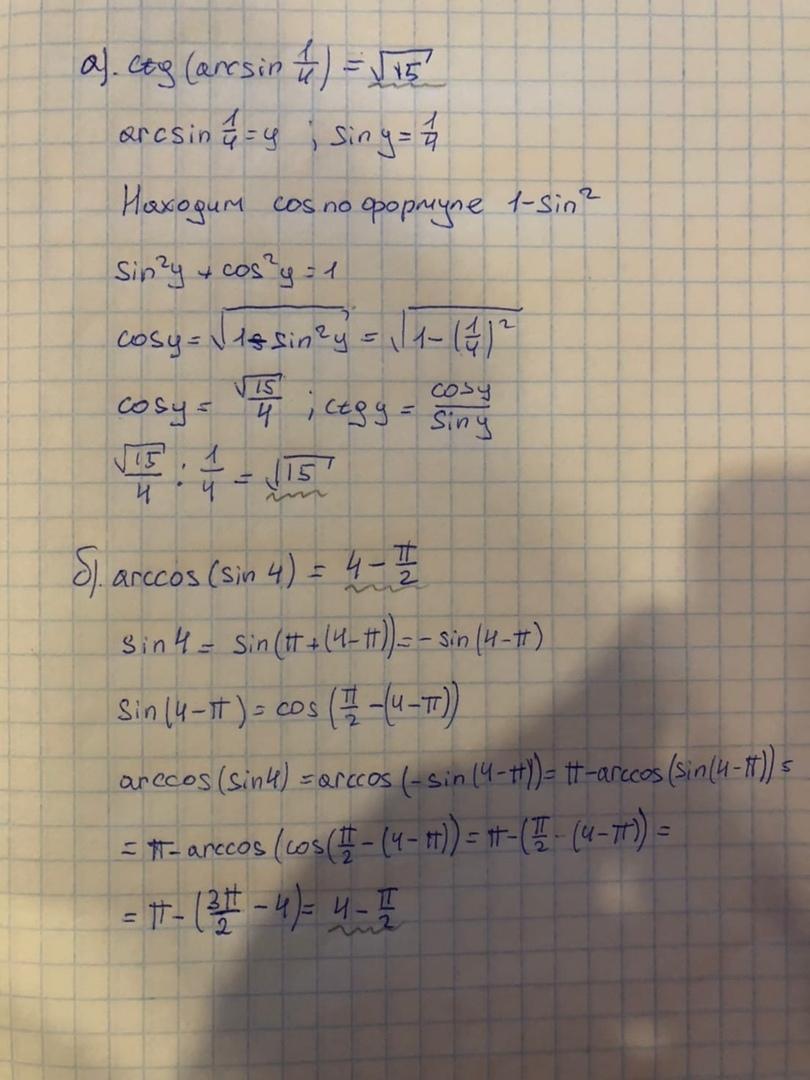 а). ctg (arcsin 1/4) = √15
arcsin 1/4 = y ; sin y = 1/4
Находим cos по формуле 1-sin²
sin²y + cos²y = 1
cos y = √(1-sin²y) = √(1-(1/4)²)
cos y = √15/4 ; ctg y = cos y/sin y
√15/4 : 1/4 = √15
б). arccos (sin 4) = 4 - π/2
sin 4 = sin(π+(4-π)) = - sin(4-π)
sin(4-π) = cos (π/2 -(4-π))
arccos(sin4) = arccos (-sin(4-π)) = π-arccos(sin(4-π)) =
= π- arccos (cos(π/2 - (4-π)) = π-(π/2 - (4-π)) =
= π - (3π/2 - 4) = 4 - π/2